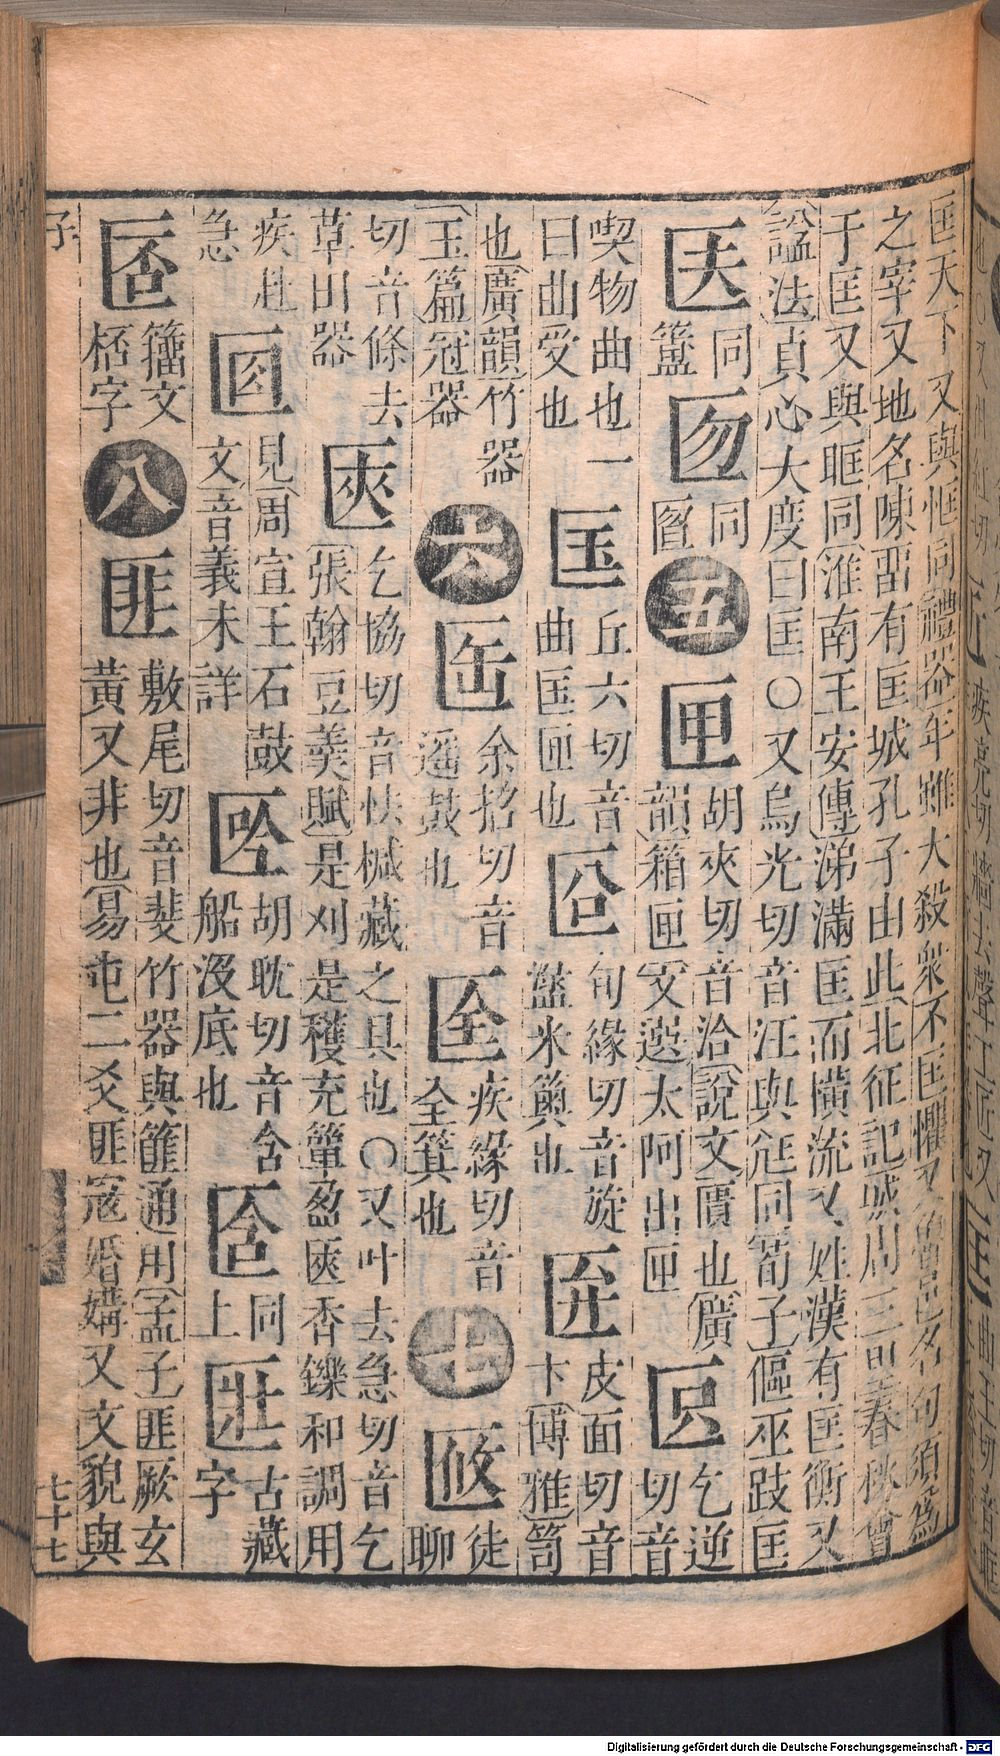 匡天下又與恇同禮器年雖大殺衆不匡懼又魯邑名句須爲
之宰又地名陳畱有匡城孔子由此北征記城周三里春秋會
于匡又與眶同淮南王安傳涕滿匡而橫流又姓漢有匡衡又
諡法貞心大度曰匡○又烏光切音汪與尪同荀子傴巫跂匡
㚎同簠
匢同匫
五
匣胡夾切音洽說文匱也廣韻箱匣文選太阿出匣
乞逆切音喫物曲也一曰曲受也
匤丘六切音曲匤匝也
㕣旬緣切音旋䀋米籅也
皮面切音卞博雅笥也廣韻竹器玉篇冠器
六
余招切音遥鼓也
疾緣切音全箕也
七
匧徒聊切音條去草田器
匧乞協切音怯椷藏之具也○又叶去急切音乞張翰豆羮賦是刈是穫充簞盈匧香鑠和調用疾赴急
見周宣王石鼓文音義未詳
胡耽切音含船沒底也
同上
古藏字
籒文桮字
八
匪敷尾切音斐竹器與篚通用孟子匪厥玄黃又非也易屯二爻匪寇婚媾又文貌與
子
七十七
Digitalisierung gefördert durch die Deutsche Forschungsgemeinschaft - DFG